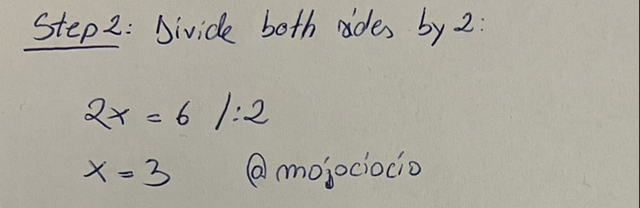 Step 2: Divide both sides by 2:
2x = 6 /:2
x = 3 @mojociocio